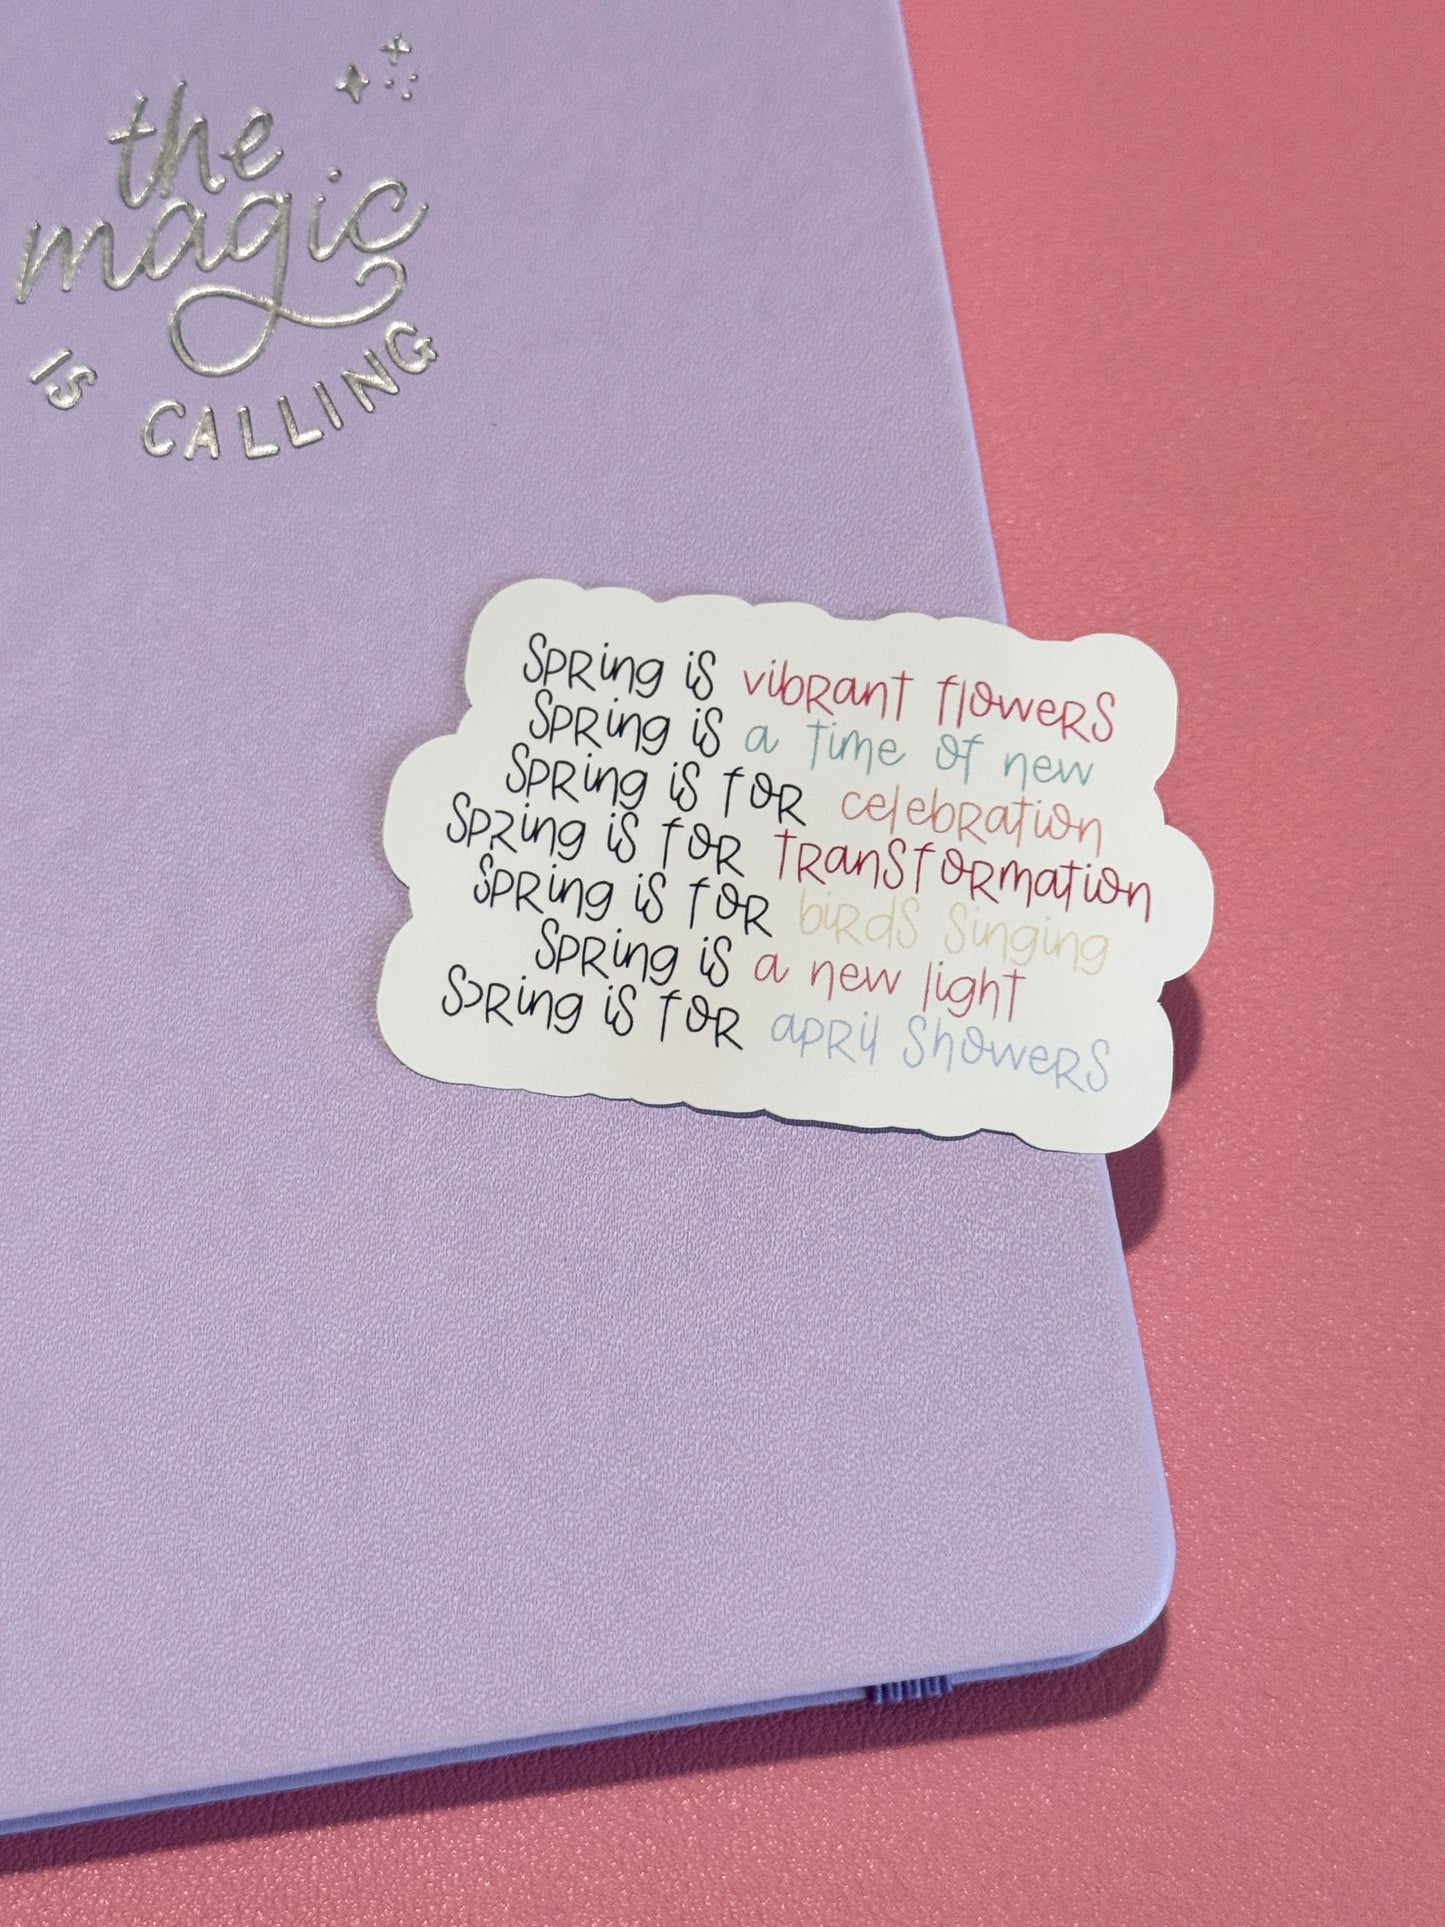 the
magic
IS CALLING
Spring is vibrant flowers
Spring is a time of new
Spring is for celebration
Spring is for transformation
Spring is for birds singing
Spring is a new light
Spring is for april showers